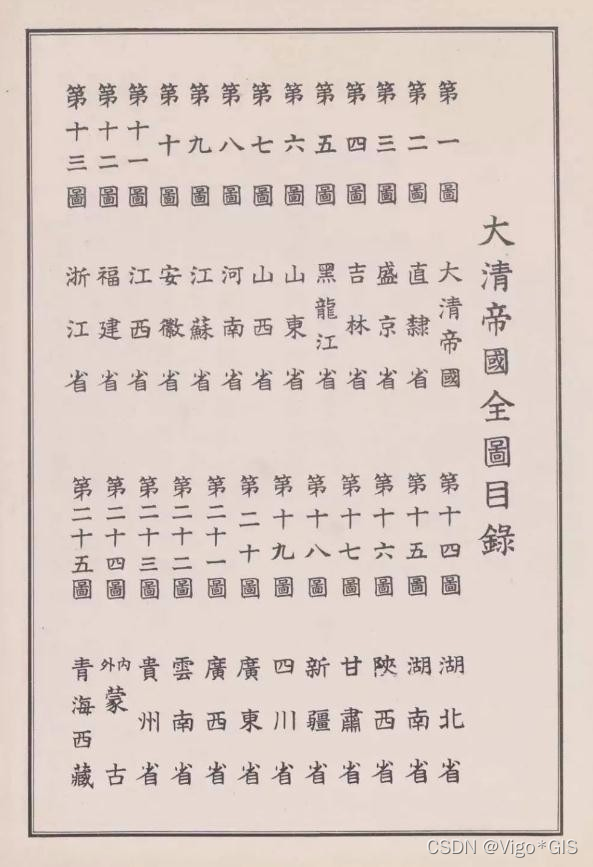 大清帝國全圖目錄
第一圖 大清帝國
第二圖 直隸省
第三圖 盛京省
第四圖 吉林省
第五圖 黑龍江省
第六圖 山東省
第七圖 山西省
第八圖 河南省
第九圖 江蘇省
第十圖 安徽省
第十一圖 江西省
第十二圖 福建省
第十三圖 浙江省
第十四圖 湖北省
第十五圖 湖南省
第十六圖 陝西省
第十七圖 甘肅省
第十八圖 新疆省
第十九圖 四川省
第二十圖 廣東省
第二十一圖 廣西省
第二十二圖 雲南省
第二十三圖 貴州省
第二十四圖 內外蒙古
第二十五圖 青海西藏
CSDN @Vigo*GIS